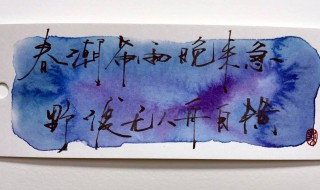 春潮带雨晚来急
野渡无人舟自横